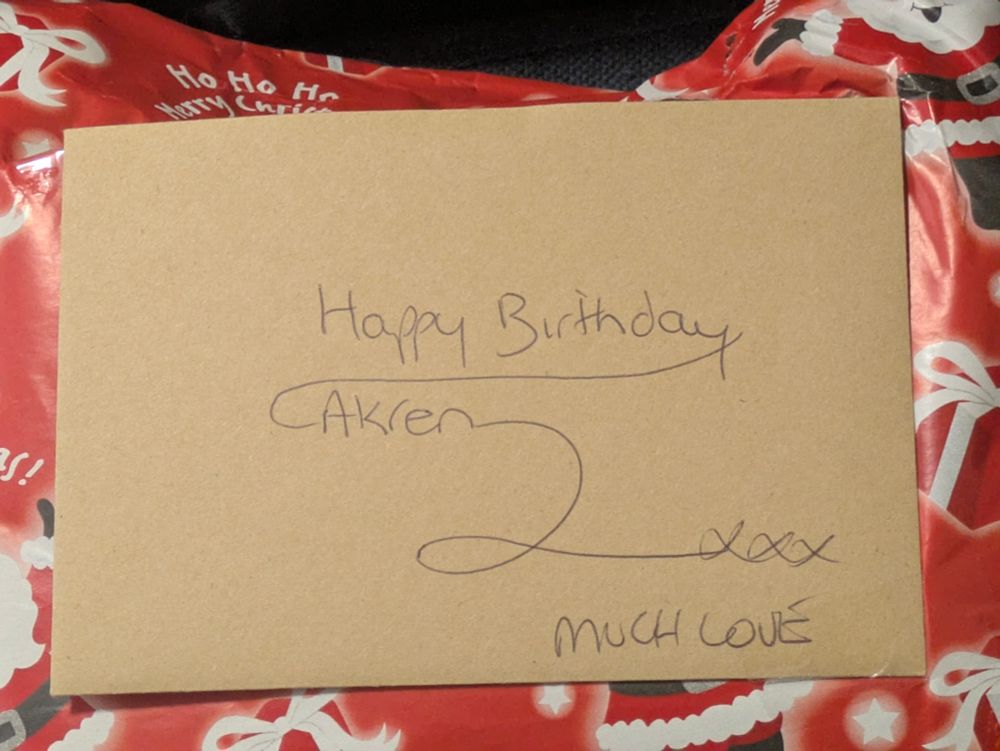 Ho Ho Ho
Merry
as!
Happy Birthday
Akren
xxx
MUCH LOVE